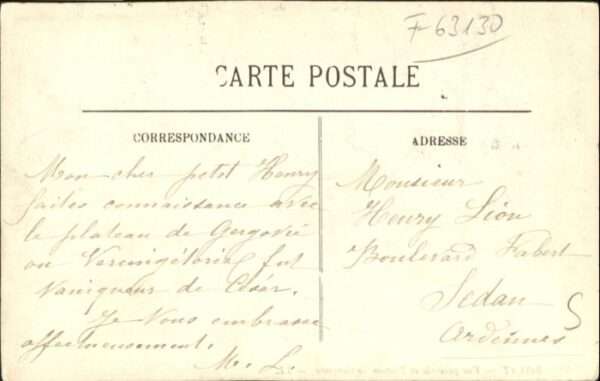 F 63130
CARTE POSTALE
CORRESPONDANCE
Mon cher petit Henry
faites connaissance avec
le plateau de Gergovie
ou Vercingétorix fut
Vainqueur de César.
Je Vous embrasse
affectueusement.
M. L.
ADRESSE
Monsieur
Henry Lion
Boulevard Fabert
Sedan
Ardennes
5